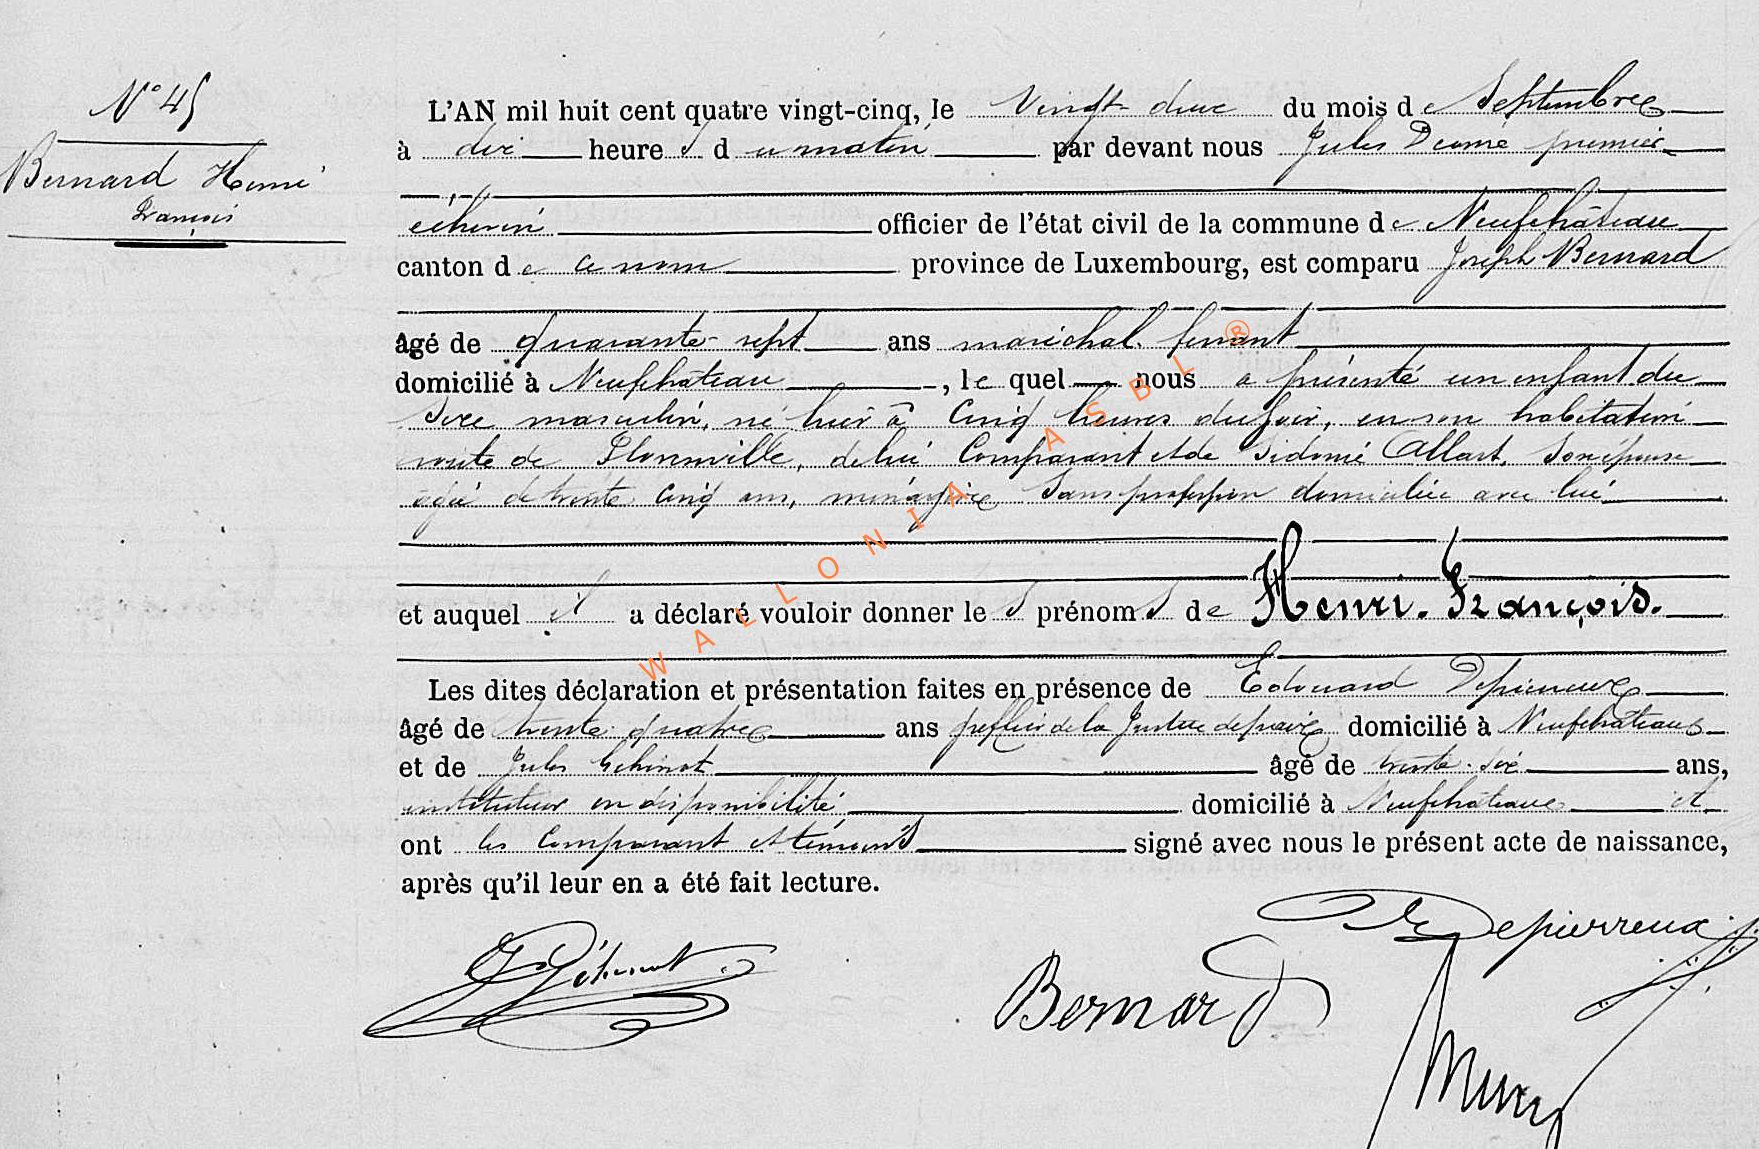 N° 45
Bernard Henri
François
L'AN mil huit cent quatre vingt-cinq, le Vingt deux du mois de Septembre
à dix heures du matin par devant nous Jules premier
échevin officier de l'état civil de la commune de Neufchâteau
canton de ce nom province de Luxembourg, est comparu Joseph Bernard
âgé de quarante-sept ans maréchal ferrant
domicilié à Neufchâteau, lequel nous a présenté un enfant du
sexe masculin, né hier à cinq heures du soir, en son habitation
route de, de lui Comparant et de Sidonie Allart, son épouse
agée de trente cinq ans, ménagère sans profession domiciliée avec lui
et auquel il a déclaré vouloir donner les prénoms de Henri-François.
Les dites déclaration et présentation faites en présence de Edouard Depierreux
âgé de trente quatre ans greffier de la Justice de paix domicilié à Neufchâteau
et de Jules Géhinot âgé de trente-six ans,
instituteur en disponibilité domicilié à Neufchâteau et
ont les Comparant et témoins signé avec nous le présent acte de naissance,
après qu'il leur en a été fait lecture.
Depierreux
Bernard
WALLONIA ASBL ®